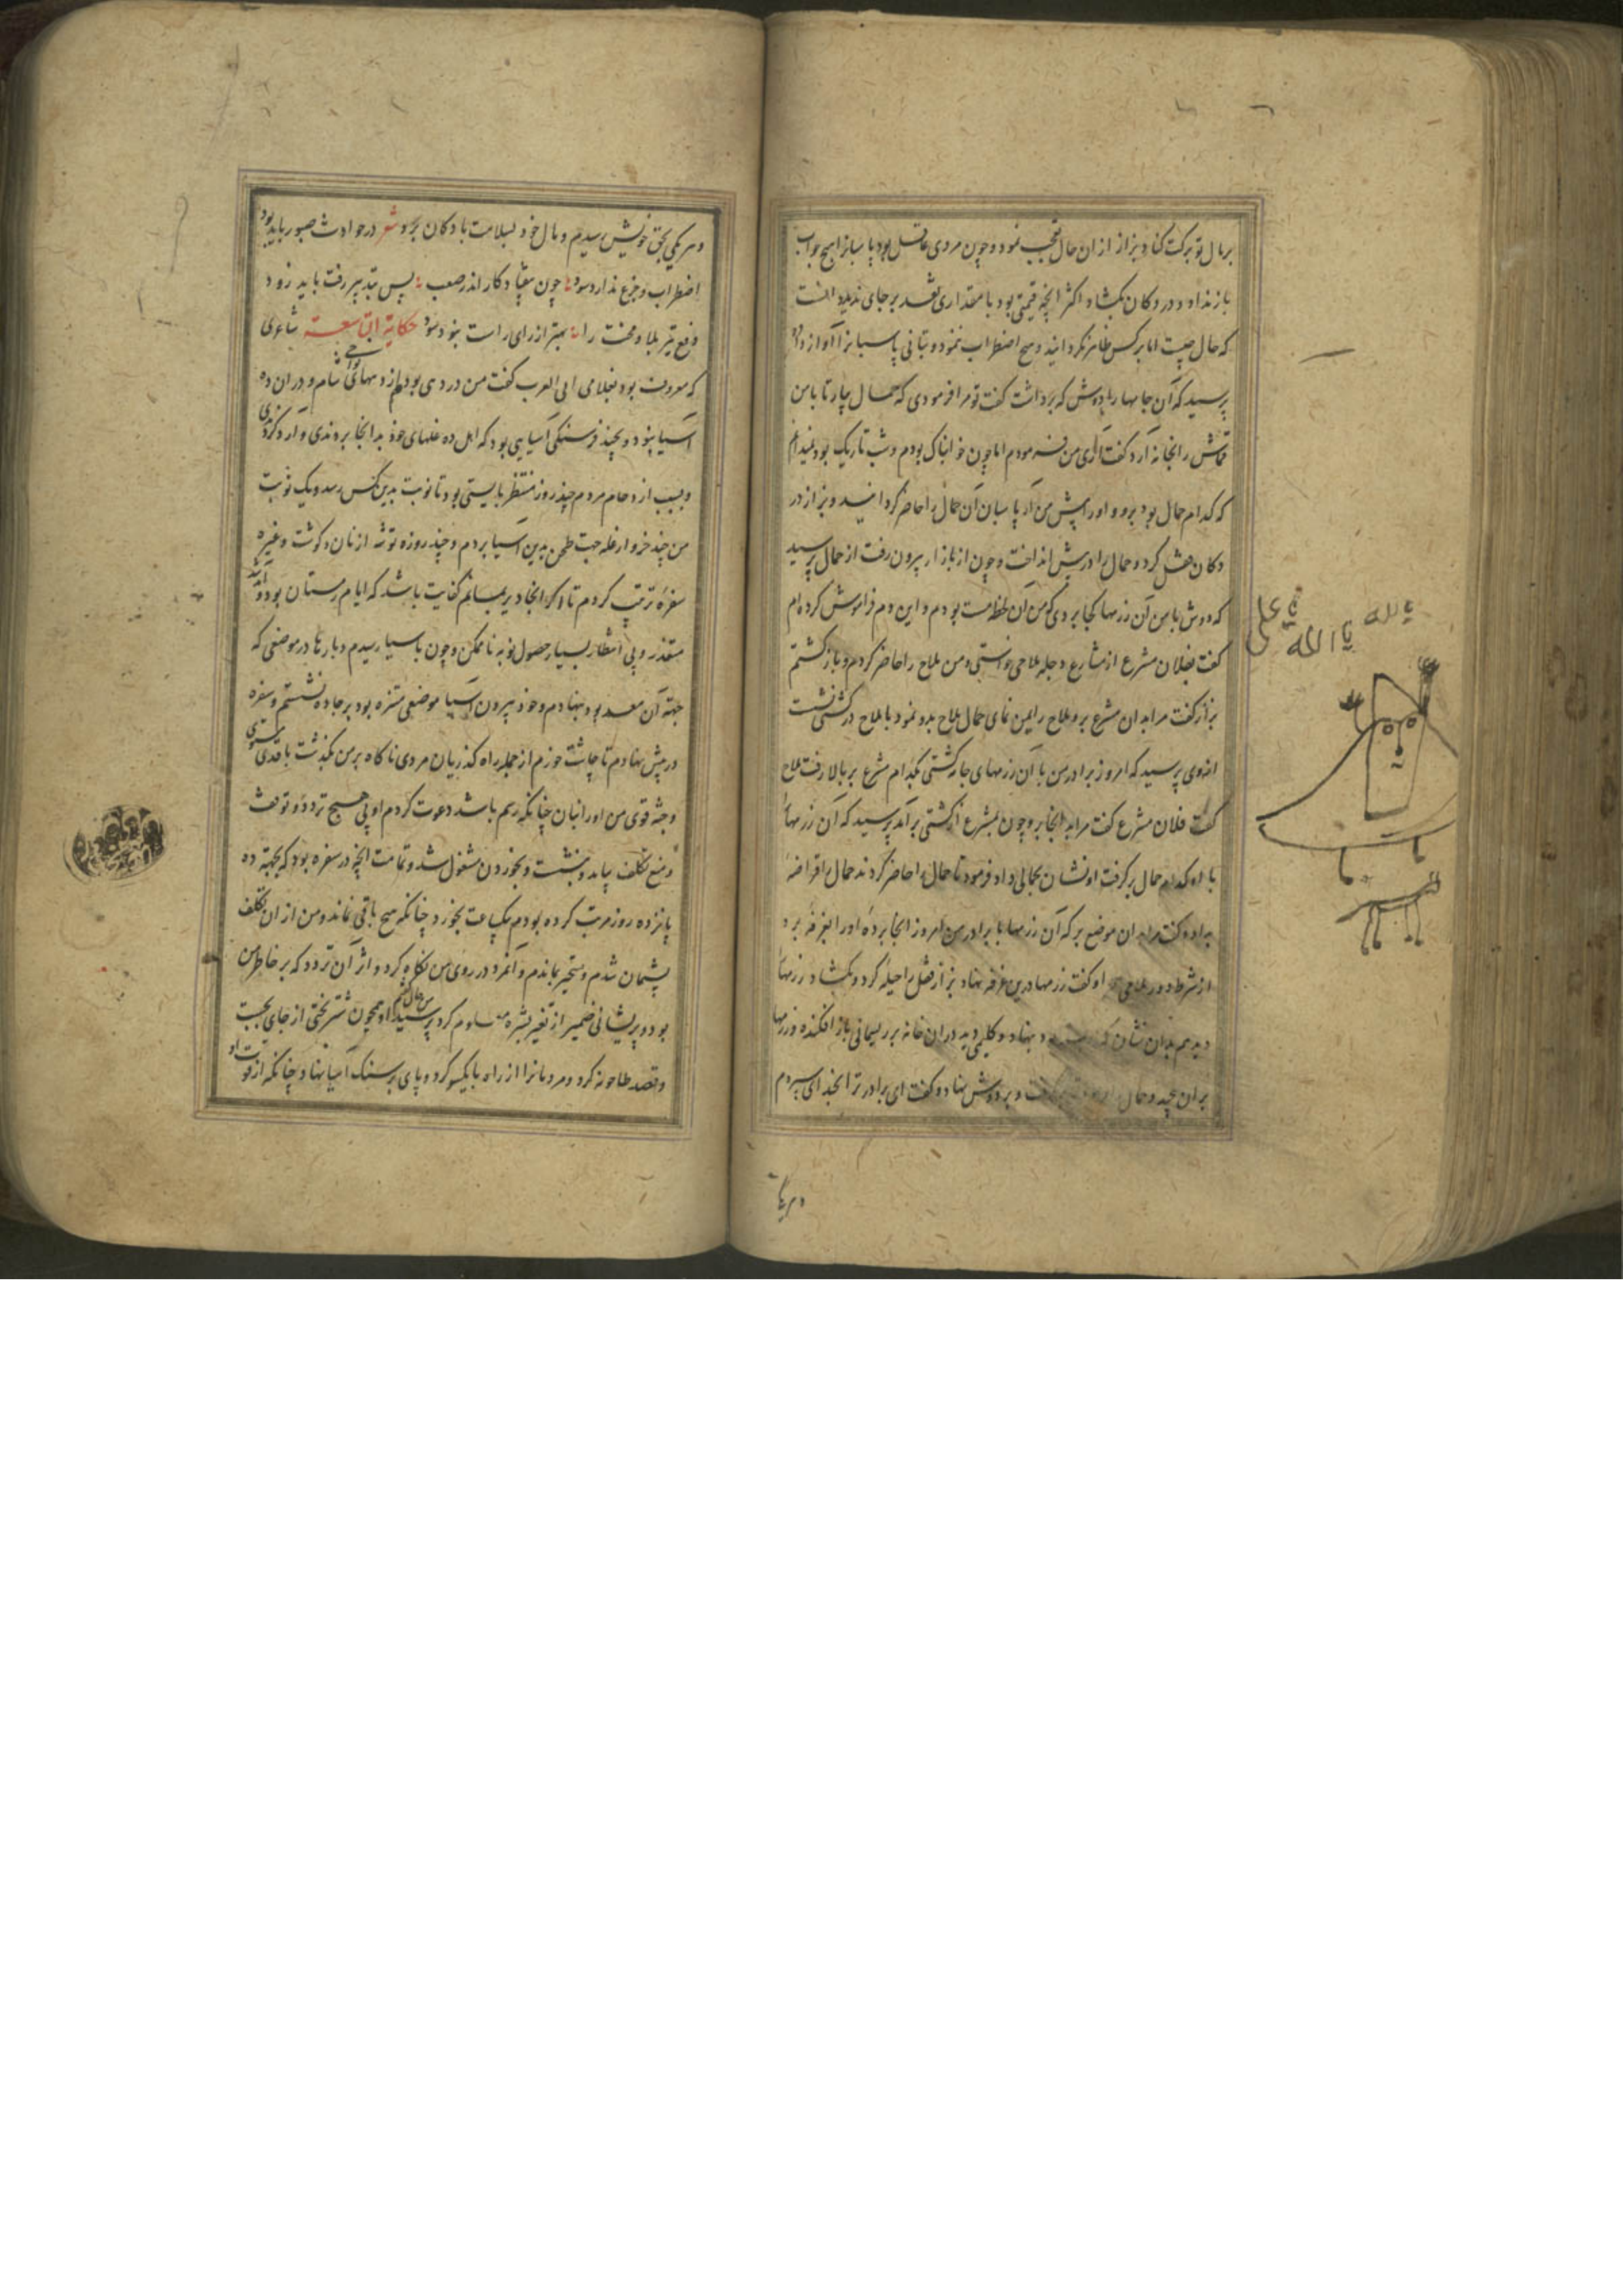 بر مال تو برکت کناد بزاز از ان حال تعجب نمود و چون مردی عاقل بود پاسبانرا هیچ جواب
باز نداد و در دکان بکشاد اکثر انچه قیمتی بود با مقداری نقد بر جای ندید دانست
که حال چیست اما بر کس ظاهر نکردانید و هیچ اضطراب ننمود و بتانی پاسبانرا آواز داد
پرسید که آن جامها را دوش که برداشت کفت تو مرا فرمودی که حمال بیار تا با من
قماش را بخانه آرد کفت آری من فرمودم اما چون خوابناک بودم و شب تاریک بود نمیدانم
که کدام حمال بود برو و او را پیش من آر پاسبان آن حمال را حاضر کردانید و بزاز در
دکان قفل کرد و حمال را در پیش انداخت و چون از بازار بیرون رفت از حمال پرسید
که دوش با من آن رزمها کجا بردی که من آن لحظه مست بودم و این دم فراموش کرده‌ام
کفت بفلان مشرع از مشارع دجله ملاحی خواستی و من ملاح را حاضر کردم و باز کشتم
بزاز کفت مرا بدان مشرع بر و ملاح را بمن نمای حمال ملاح بدو نمود با ملاح در کشتی نشست
ازوی پرسید که امروز برادر من با آن رزمهای جامه از کشتی بکدام مشرع بر بالا رفت ملاح
کفت فلان مشرع کفت مرا بد انجا بر و چون بمشرع از کشتی بر آمد پرسید که آن رزمها
با او کدام حمال بر کرفت او نشان بحمالی داد فرمود تا حمال را حاضر کردند حمال اقرا ضه
بداد و کفت مرا بدان موضع بر که آن رزمها با برادر من امروز انجا برده او را بغرفه برد
از شط دور او کفت رزمها درین غرفه نهاد بزاز قفل را حیله کرد و بکشاد رزمها
دید هم بدان نشان که نهاد و کلیمی دید دران خانه بر ریسمانی باز افکنده رزمها
بران پیچید و حمال و بر دوش نهاد و کفت ای برادر ترا بخدای سپردم
و هر یا
یا علی
یا الله
یا الله
و هر یکی بحق خویش رسیدیم و مال خود بسلامت با دکان برد شعر در حوادث صبور باید بود
اضطراب و جزع ندارد سود چون بیفتاد کار اندر صعب پس بتدبیر رفت باید زود
دفع تیر بلا و محنت را بهتر از رای راست نبود سود حکایة التاسعة شاعری
که معروف بود بغلامی ابی العرب کفت من در دی بودم از دیههای نواحی شام و دران ده
آسیا نبود و بچند فرسنکی آسیایی بود که اهل ده غلهای خود بدانجا بردندی و آرد کردندی
و بسبب ازدحام مردم چند روز منتظر بایستی بود تا نوبت بدین کس رسد و یک نوبت
من چند خروار غله جهت طحن بدین آسیا بردم و چند روزه توشه از نان و کوشت و غیره
سفره ترتیب کردم تا اکر انجا دیر بمانم کفایت باشد که ایام زمستان بود و آمد شد
متعذر و بی انتظار بسیار حصول نوبه ناممکن و چون باسیا رسیدم و بارها در موضعی که
جهة آن معد بود بنهادم و خود بیرون آسیا موضعی متنزه بود بر جاده نشستم و سفره
در پیش نهادم تا چاشت خورم از جمله راه کذریان مردی ناکاه بر من بکذشت با قدی مستوی
و جثه قوی من او را بنان چنانکه رسم باشد دعوت کردم او بی هیچ تردد و توقف
و منع و تکلف بیامد و بنشست و بخوردن مشغول شد و تمامت انچه در سفره بود که بجهة ده
پانزده روز مرتب کرده بودم بیکساعت بخورد چنانکه هیچ باقی نماند و من از ان تکلف
پشیمان شدم و متحیر بماندم و آنمرد در روی من نکاه کرد و اثر آن تردد که بر خاطر من
بود و پریشانی ضمیر از تغیر بشره معلوم کرد پرسید من حال بکفتم او همچون شتر بختی از جای بجست
و قصد طاحونه کرد و مردمانرا از راه با یکسو کرد و پای بر سنک آسیا نهاد چنانکه از قوت او